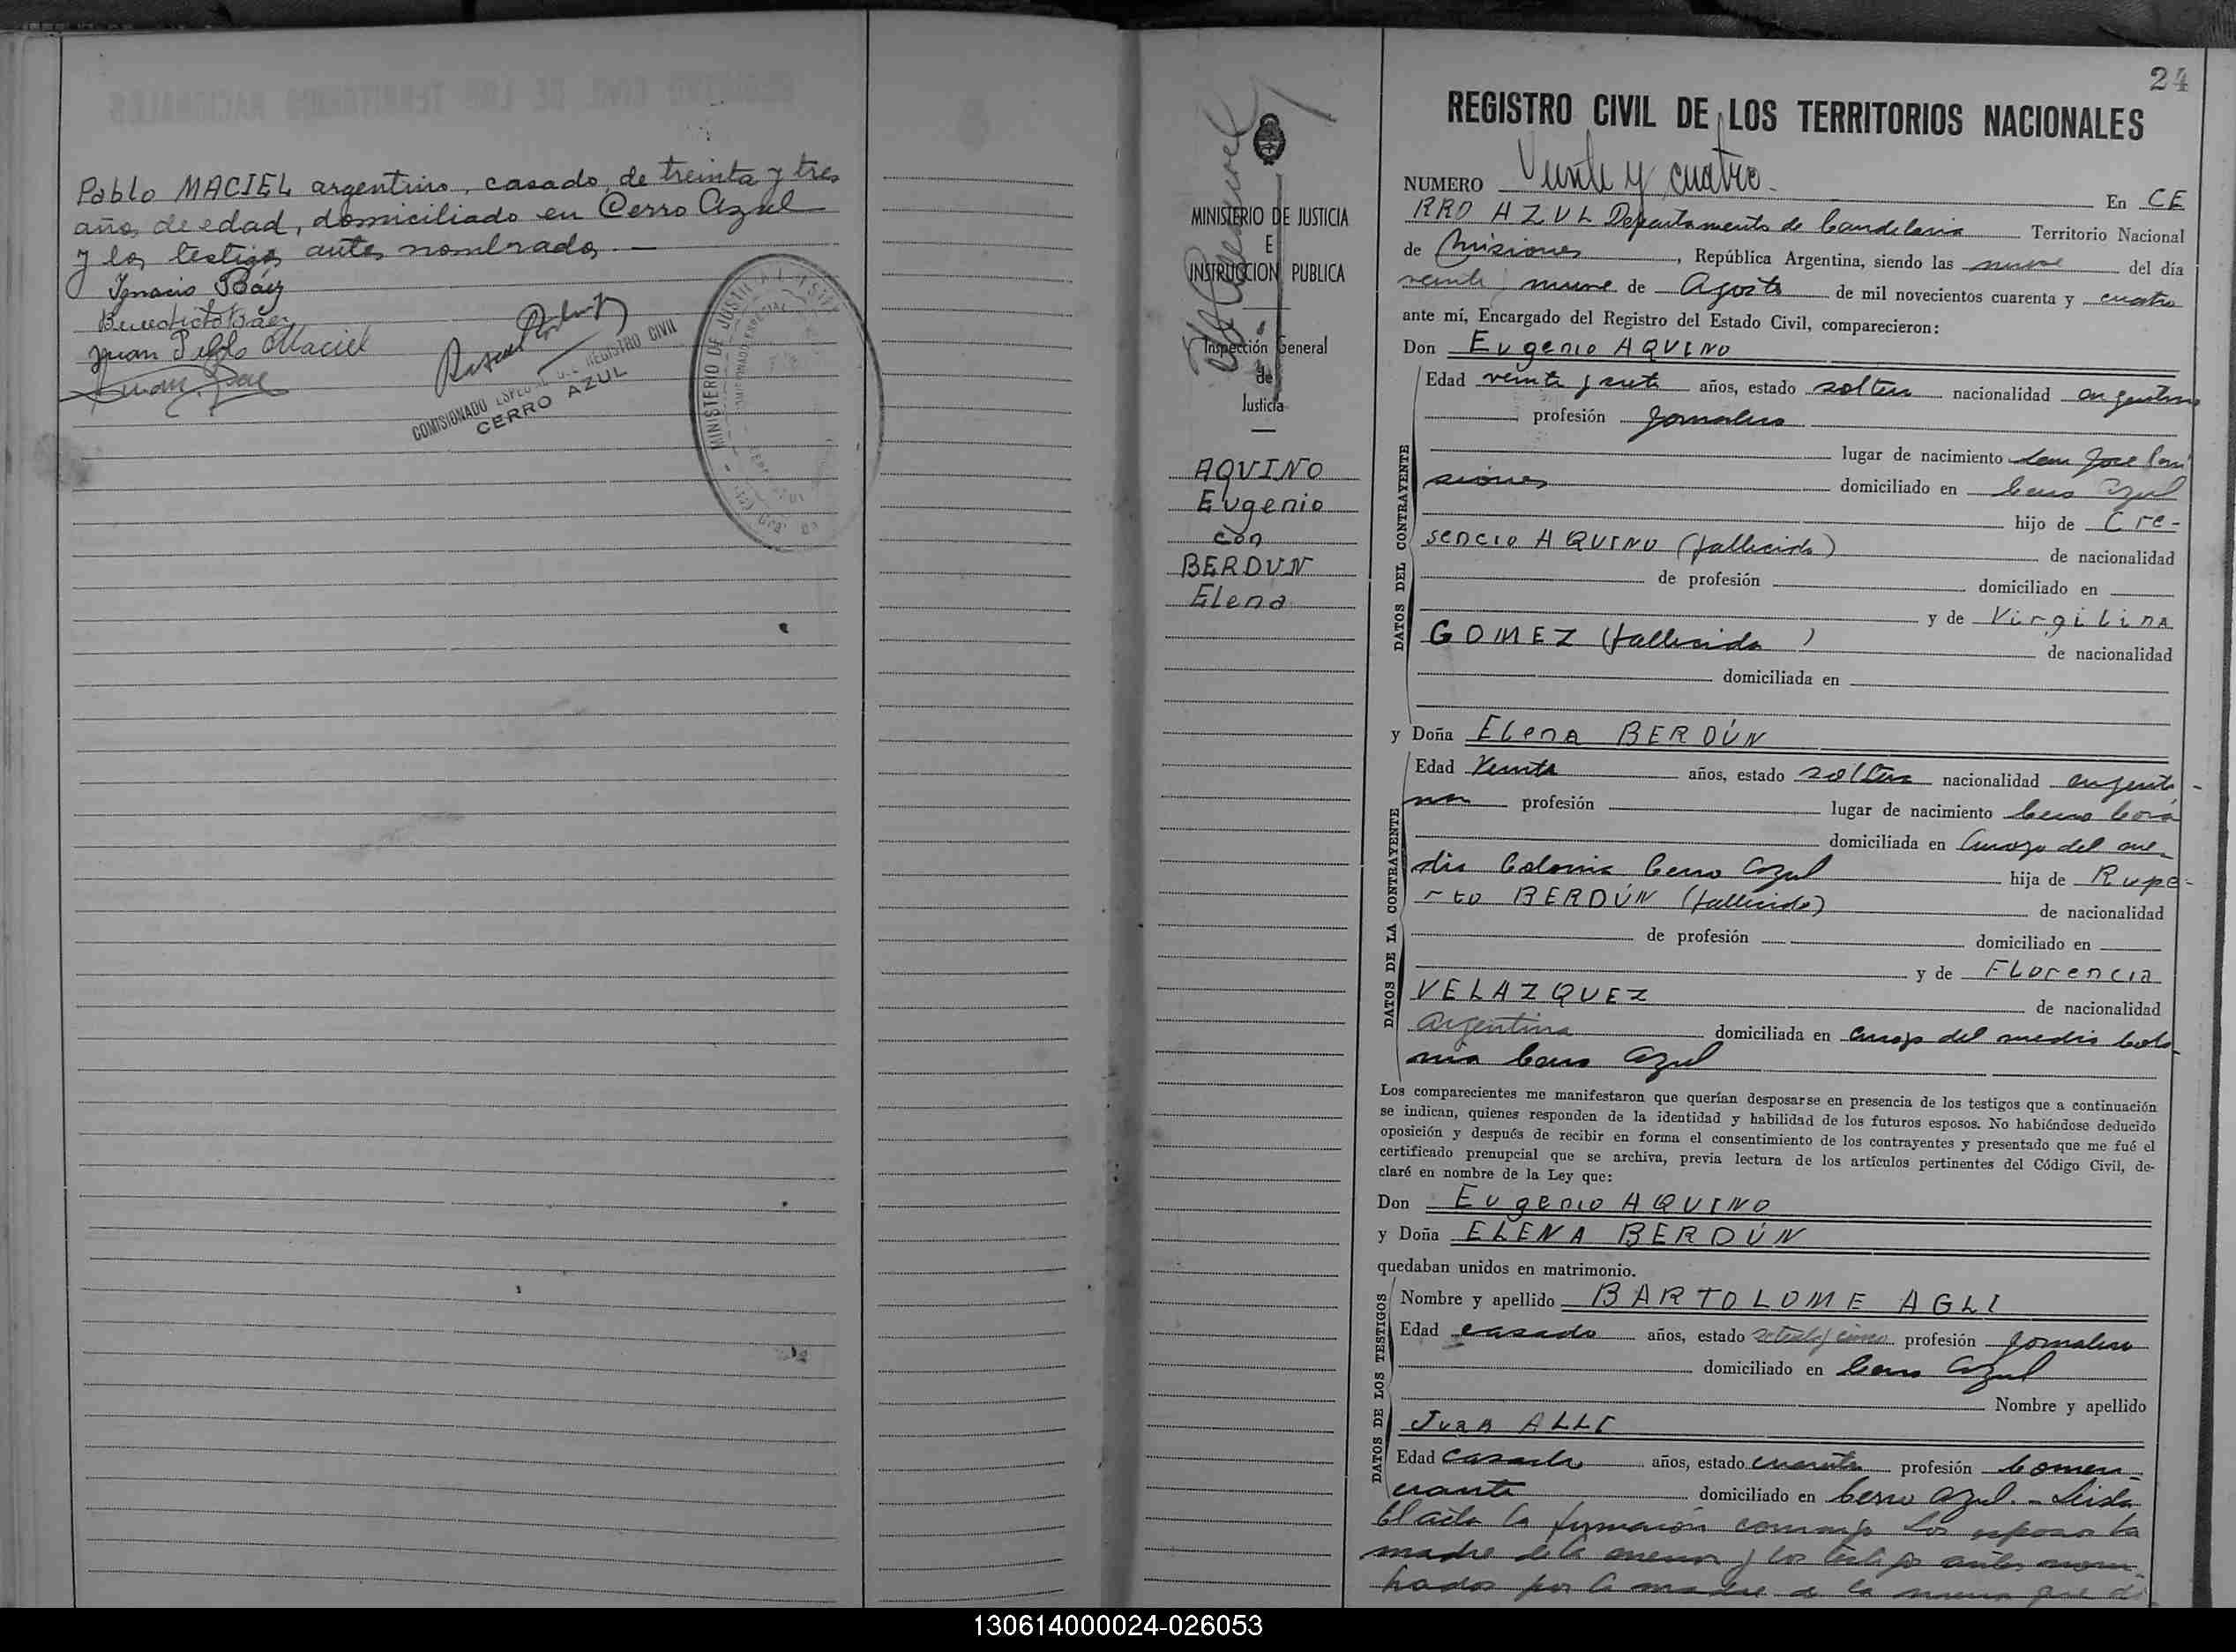 Pablo MACIEL argentino, casado, de treinta y tres
años de edad, domiciliado en Cerro Azul
y los testigos antes nombrados. —
Ignacio Báez
Benedicto Báez
Juan Pablo Maciel
COMISIONADO ESPECIAL DEL REGISTRO CIVIL
CERRO AZUL
MINISTERIO DE JUSTICIA
24
MINISTERIO DE JUSTICIA
E
INSTRUCCION PUBLICA
Inspección General
de
Justicia
AQUINO
Eugenio
con
BERDUN
Elena
REGISTRO CIVIL DE LOS TERRITORIOS NACIONALES
NUMERO Veinte y cuatro. En CE
RRO AZUL Departamento de Candelaria Territorio Nacional
de Misiones, República Argentina, siendo las nueve del día
veinte y nueve de Agosto de mil novecientos cuarenta y cuatro
ante mí, Encargado del Registro del Estado Civil, comparecieron:
Don Eugenio AQUINO
DATOS DEL CONTRAYENTE
Edad veinte y siete años, estado soltero nacionalidad argentino
profesión Jornalero
lugar de nacimiento San José Mi
siones domiciliado en Cerro Azul
hijo de Cre-
sencio AQUINO (fallecido) de nacionalidad
de profesión domiciliado en
y de Virgilina
GOMEZ (fallecida) de nacionalidad
domiciliada en
y Doña Elena BERDÚN
DATOS DE LA CONTRAYENTE
Edad Veinte años, estado soltera nacionalidad argenti-
na profesión lugar de nacimiento Cerro Corá
domiciliada en Arroyo del me-
dio Colonia Cerro Azul hija de Rupe-
rto BERDÚN (fallecido) de nacionalidad
de profesión domiciliado en
y de Florencia
VELAZQUEZ de nacionalidad
Argentina domiciliada en Arroyo del medio Colo-
nia Cerro Azul
Los comparecientes me manifestaron que querían desposarse en presencia de los testigos que a continuación
se indican, quienes responden de la identidad y habilidad de los futuros esposos. No habiéndose deducido
oposición y después de recibir en forma el consentimiento de los contrayentes y presentado que me fué el
certificado prenupcial que se archiva, previa lectura de los artículos pertinentes del Código Civil, de-
claré en nombre de la Ley que:
Don Eugenio AQUINO
y Doña ELENA BERDÚN
quedaban unidos en matrimonio.
DATOS DE LOS TESTIGOS
Nombre y apellido BARTOLOME AGLI
Edad casado años, estado profesión Jornalero
domiciliado en Cerro Azul
Nombre y apellido
Juan ALLI
Edad casado años, estado cuarenta profesión Comer-
ciante domiciliado en Cerro Azul. - Leida
el acta la firmaron conmigo los esposos la
madre de la menor y los testigos antes nom-
brados por la madre de la menor que
130614000024-026053